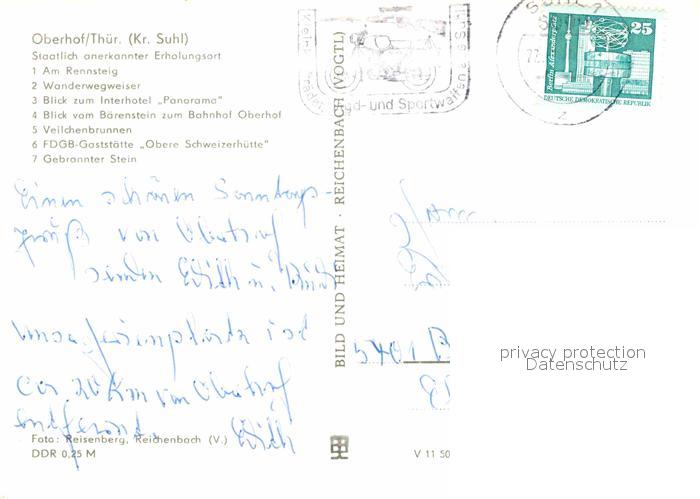 Oberhof/Thür. (Kr. Suhl)
Staatlich anerkannter Erholungsort
1 Am Rennsteig
2 Wanderwegweiser
3 Blick zum Interhotel „Panorama"
4 Blick vom Bärenstein zum Bahnhof Oberhof
5 Veilchenbrunnen
6 FDGB-Gaststätte „Obere Schweizerhütte"
7 Gebrannter Stein
Einen schönen Sonntags-
gruß von Oberhof
senden
ist
ca. 20 km von Oberhof
entfernt.
Foto: Reisenberg, Reichenbach (V.)
DDR 0,25 M
BILD UND HEIMAT · REICHENBACH (VOGTL)
und Sportwaffen
SUHL
25
Berlin, Alexanderplatz
DEUTSCHE DEMOKRATISCHE REPUBLIK
5401
privacy protection
Datenschutz
V 11 50